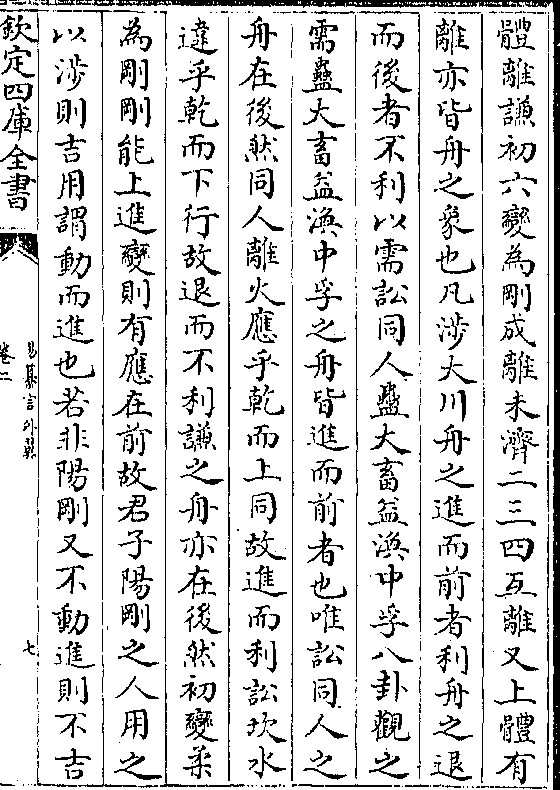 體離謙初六變為剛成離未濟二三四互離又上體有
離亦皆舟之象也凡涉大川舟之進而前者利舟之退
而後者不利以需訟同人蠱大畜益渙中孚八卦觀之
需蠱大畜益渙中孚之舟皆進而前者也唯訟同人之
舟在後然同人離火應乎乾而上同故進而利訟坎水
違乎乾而下行故退而不利謙之舟亦在後然初變柔
為剛剛能上進變則有應在前故君子陽剛之人用之
以涉則吉用謂動而進也若非陽剛又不動進則不吉
欽定四庫全書
易纂言外翼
卷二
七